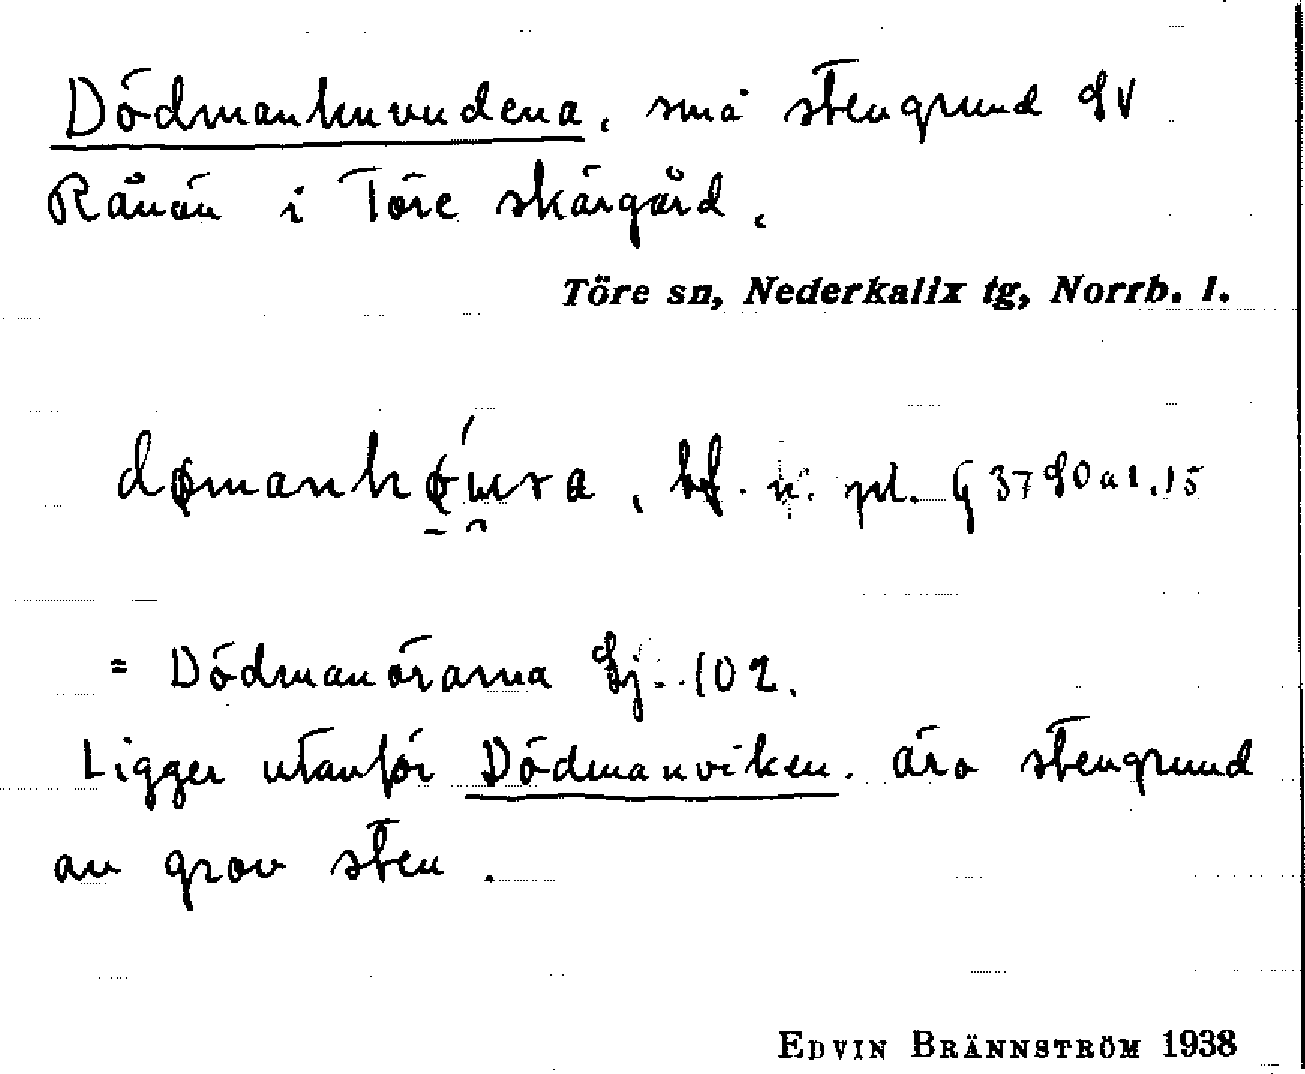 Dödmanhuvudena, små stengrund SV
Rånön i Töre skärgård.
Töre sn, Nederkalix tg, Norrb. l.
bf. n. pl. § 37
= Dödmanörarna Sj. 102.
Ligger utanför Dödmanviken. äro stengrund
av grov sten.
EDVIN BRÄNNSTRÖM 1938